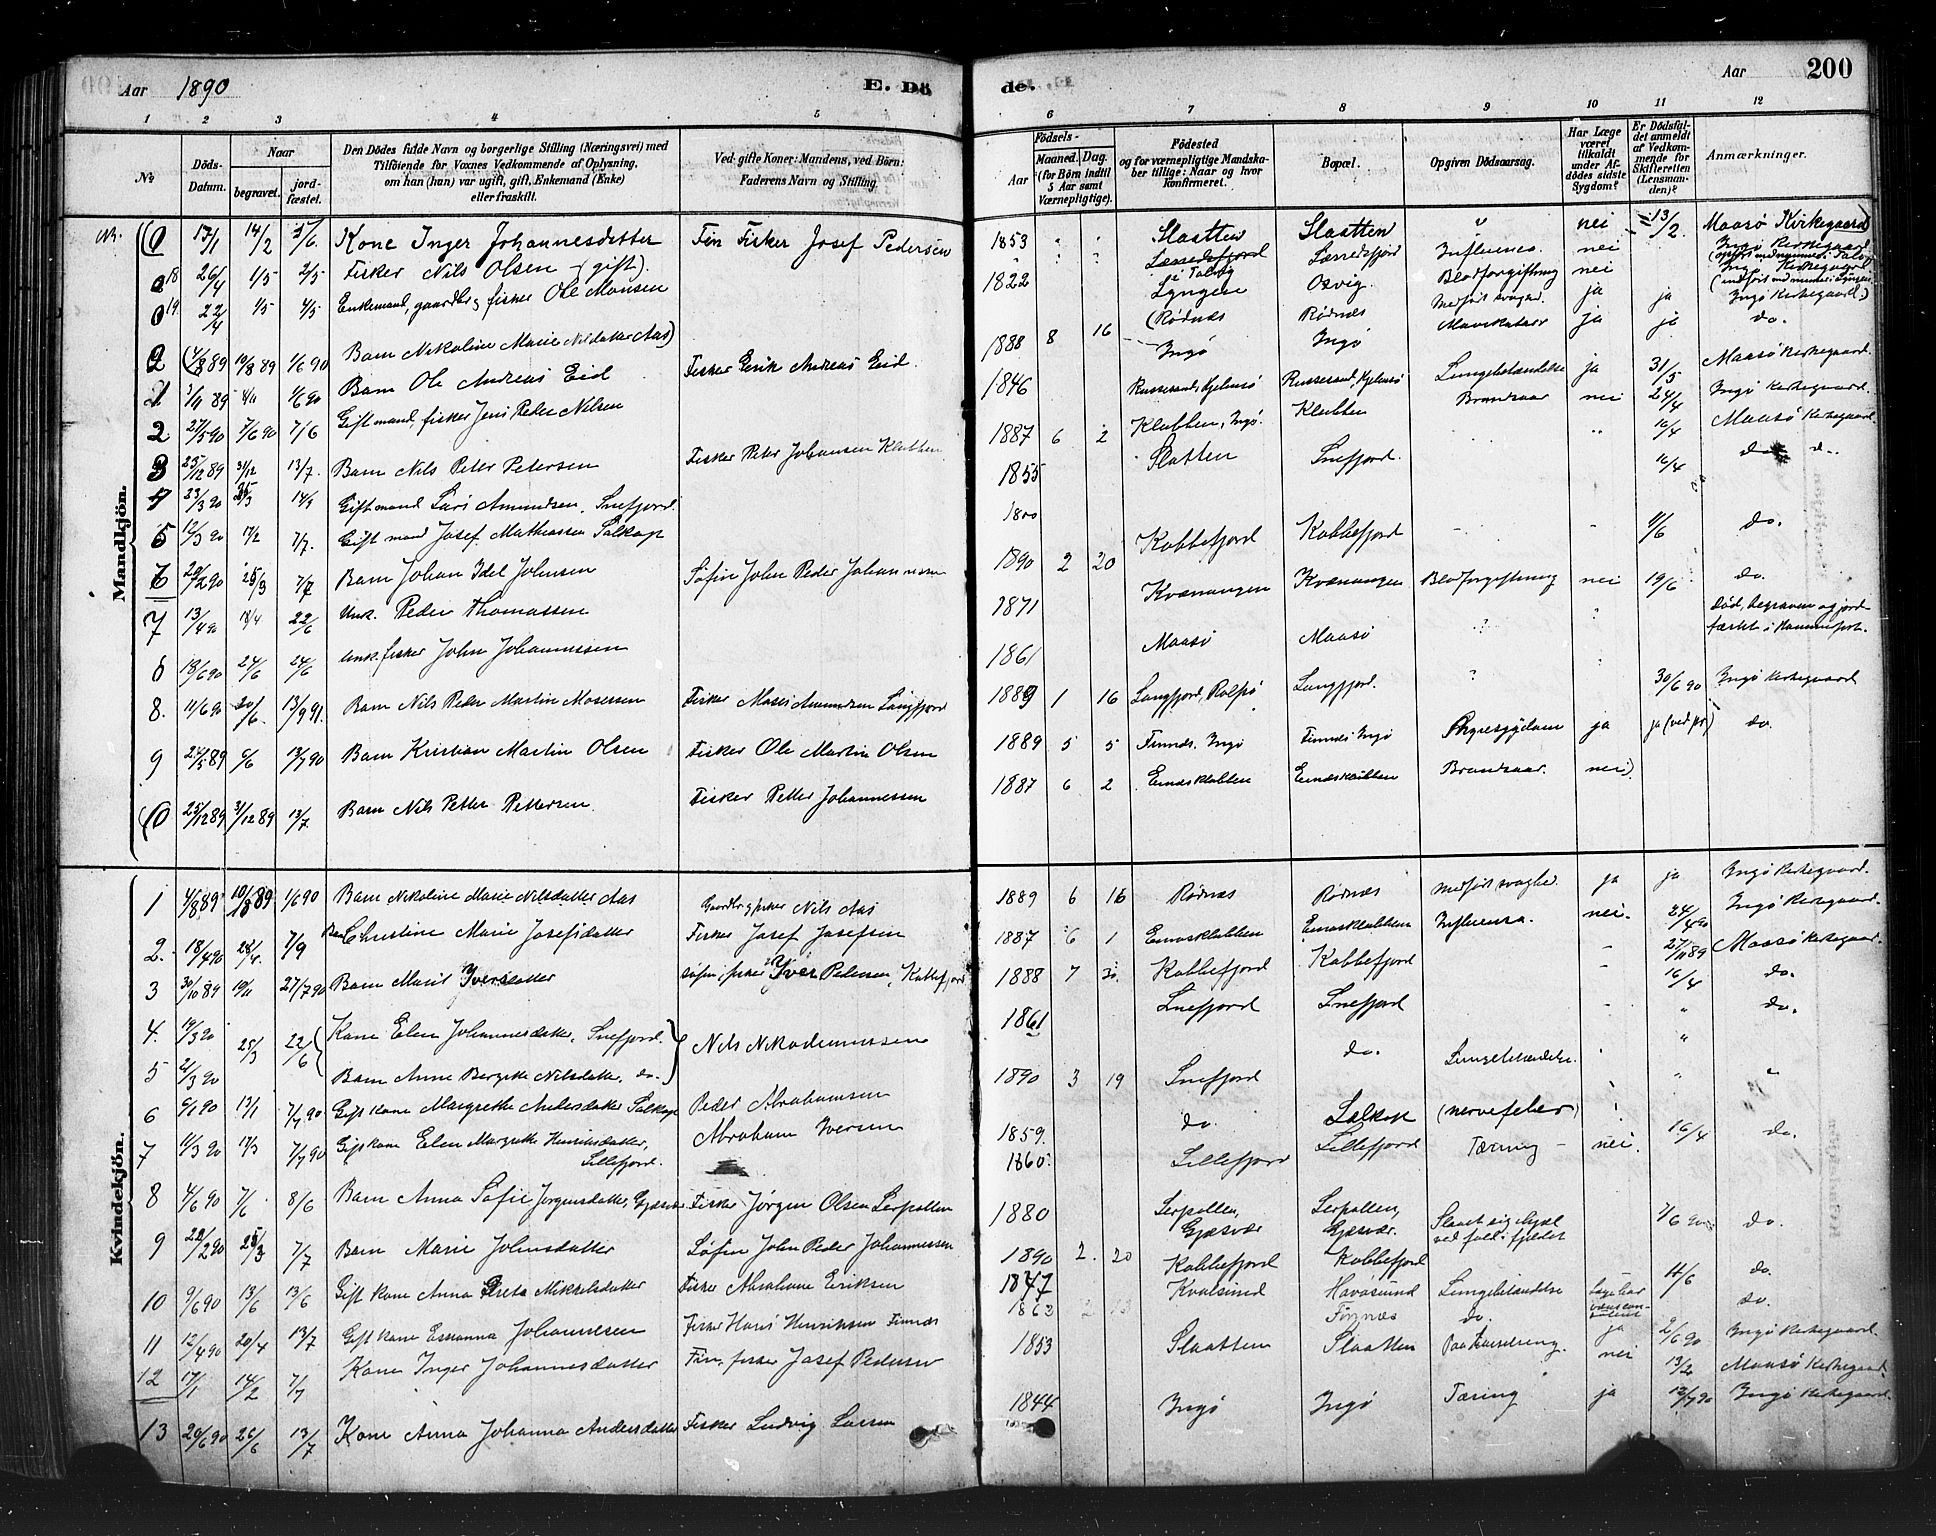 Aar 1890 E. Dö de. Aar 200
1 2 3 4 5 6 7 8 9 10 11 12
No
Döds-Datum.
Naar
begravet. jord-fæstet.
Den Dödes fulde Navn og borgerlige Stilling (Næringsvei) med
Tilföiende for Voxnes Vedkommende af Oplysning,
om han (hun) var ugift, gift, Enkemand (Enke)
eller fraskilt.
Ved gifte Koner: Mandens, ved Börn:
Faderens Navn og Stilling.
Födsels-
Aar Maaned. Dag.
(for Börn indtil
5 Aar samt
Værnepligtige).
Födested
og for værnepligtige Mandska-
ber tillige: Naar og hvor
konfirmeret.
Bopæl.
Opgiven Dödsaarsag.
Har Læge
været
tilkaldt
under Af-
dödes sidste
Sygdom?
Er Dödsfal-
det anmeldt
af Vedkom-
mende for
Skifteretten
(Lensman-
den)?
Anmærkninger.
Mandkjön.
17/1 14/2 Kone Inger Johannesdatter Fin Fisker Josef Pedersen 1853 Slaatten Slaatten nei 13/2 Maasø Kirkegaard
18 26/4 1/5 2/5 Fisker Nils Olsen (gift). Influensa nei Ingø Kirkegaard
19 22/4 1/5 4/5 Enkemand, gaardbr. & fisker Ole Monsen 1822 Lyngen Oxvig Blodforgiftning nei
Barn Nikoline Marie Nilsdatter Aas) (Rødnæs Rødnæs Medført svaghed ja ja Ingø Kirkegaard)
2 19/8 89 1/6 90 Barn Ole Andreas Eid Fisker Erik Andreas Eid. 1888 8 16 Ingø Ingø Mavekatarr ja ja do.
Gift mand, fisker Jens Peder Nilsen 1846 Russesund, Hjelmsø Russesund, Hjelmsø Lungebetændelse ja 31/5 Maasø Kirkegaard.
2 27/5 90 7/6 90 7/6
3 25/12 89 31/12 13/7. Barn Nils Peter Petersen Fisker Peter Johansen Klubben 1887 6 2 Klubben, Ingø. Klubben Brandsaar nei 24/4 Ingø Kirkegaard.
4 23/3 90 14/9 Gift mand Lars Amundsen, Snefjord. 1855 Slatten Snefjord. 16/4 Maasø Kirkegaard.
5 12/3 90 17/2 7/7. Gift mand Josef Mathiassen Selkop 16/4 do
6 7/7 Barn Johan Idel Johnsen Søfin John Peder Johannessen 1890 2 20 Kobbefjord Kobbefjord 11/6 do.
7 13/4 90 18/4 22/6 Unk. Peder Thomassen 1871 Kvænangen Kvænangen Blodforgiftning nei 19/6 do.
8 18/6 90 24/6 24/6 Unk. fisker John Johannessen 1861 Maasø Maasø Død, begraven og jord-
fæstet i Hammerfest.
8. 11/6 90 20/6. 13/9 91. Barn Nils Peder Martin Mosessen Fisker Moses Amundsen Langfjord 1889 1 16 Langfjord, Rolfsø Langfjord. 30/6 90 Ingø Kirkegaard
9 24/5 89 6/6 13/7 90 Barn Kristian Martin Olsen Fisker Ole Martin Olsen 1889 5 5 Finnæs. Ingø Finnæs Ingø ja ja (ved pr.) do.
(10 25/12 89 31/12 89 13/7 Barn Nils Petter Pettersen. Fisker Petter Johannessen 1887 6 2 Einæsklubben Einæsklubben Brandsaar. nei).
Kvindekjön.
1 4/8 89 10/8 89 1/6 90 Barn Nikoline Marie Nilsdatter Aas Gaardbr. & fisker Nils Aas 1889 6 16 Rødnæs Rødnæs Medført svaghed ja ja Ingø Kirkegaard.
2. 18/4 90 28/4. 7/9 Christine Marie Josefsdatter Fisker Josef Josefsen 1887 6 1 Einæsklubben Einæsklubben Influensa. nei. 24/4 90 Ingø Kirkegaard.
3 30/10 89 19/11 27/7 90 Barn Marit Iversdatter Søfin, fisker Iver Pedersen, Kobbefjord 1888 7 Kobbefjord Kobbefjord 27/11 89 Maasø Kirkegaard.
4. 19/3 90 25/3 22/6 Kone Elen Johannesdatter, Snefjord. Nils Nikodemussen 1861 Snefjord Snefjord 16/4 do.
5 21/3 90 Barn Anne Bergitte Nilsdatter, do. 1890 3 19 Snefjord do. Lungebetændelse. do.
6 6/1 90 13/1 7/7 90 Gift kone Margrethe Andersdatter Selkop Peder Abrahamsen 1859. do. Selkop (nervefeber)
7 11/3 90 17/3 7/7 90 Gift kone Elen Margrethe Henriksdatter, Lillefjord. Abraham Iversen 1860. Lillefjord Lillefjord Tæring nei. 16/4 do.
8 4/6 90 7/6 8/6 Barn Anna Sofie Jørgensdatter, Gjæsvær Fisker Jørgen Olsen Serpollen 1880 Serpollen, Gjæsvær Serpollen, Gjæsvær. Slaaet sig ihjel
ved fald i fjeldet 7/6 90 do.
9 28/2 90 25/3 7/7 Barn Marie Johnsdatter Søfin John Peder Johannessen 1890 2. 20 Kobbefjord Kobbefjord 11/6 do.
10 9/6 90 13/6 13/6 Gift kone Anna Greta Mikkelsdatter Fisker Abraham Eriksen 1847 Kvalsund Havøsund Lungebetændelse do.
11 12/4 90 20/4 13/7 Gift kone Susanna Johannesen Fisker Hans Henriksen Finnæs 1862 2 13 Finnæs do. ja 2/6 90 Ingø Kirkegaard
12 17/1 14/2 7/7 Kone Inger Johannesdatter Fin, fisker Josef Pedersen 1853 Slaatten Slaatten Paa barselseng. nei 13/2 Maasø Kirkegaard.
13 20/6 90 26/6 13/7 Kone Anna Johanna Andersdatter Fisker Ludvig Larsen 1844 Ingø Ingø Tæring ja 13/7 90 Ingø Kirkegaard.